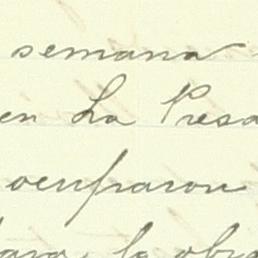 semana
en La Presa
ocuparon
la obra